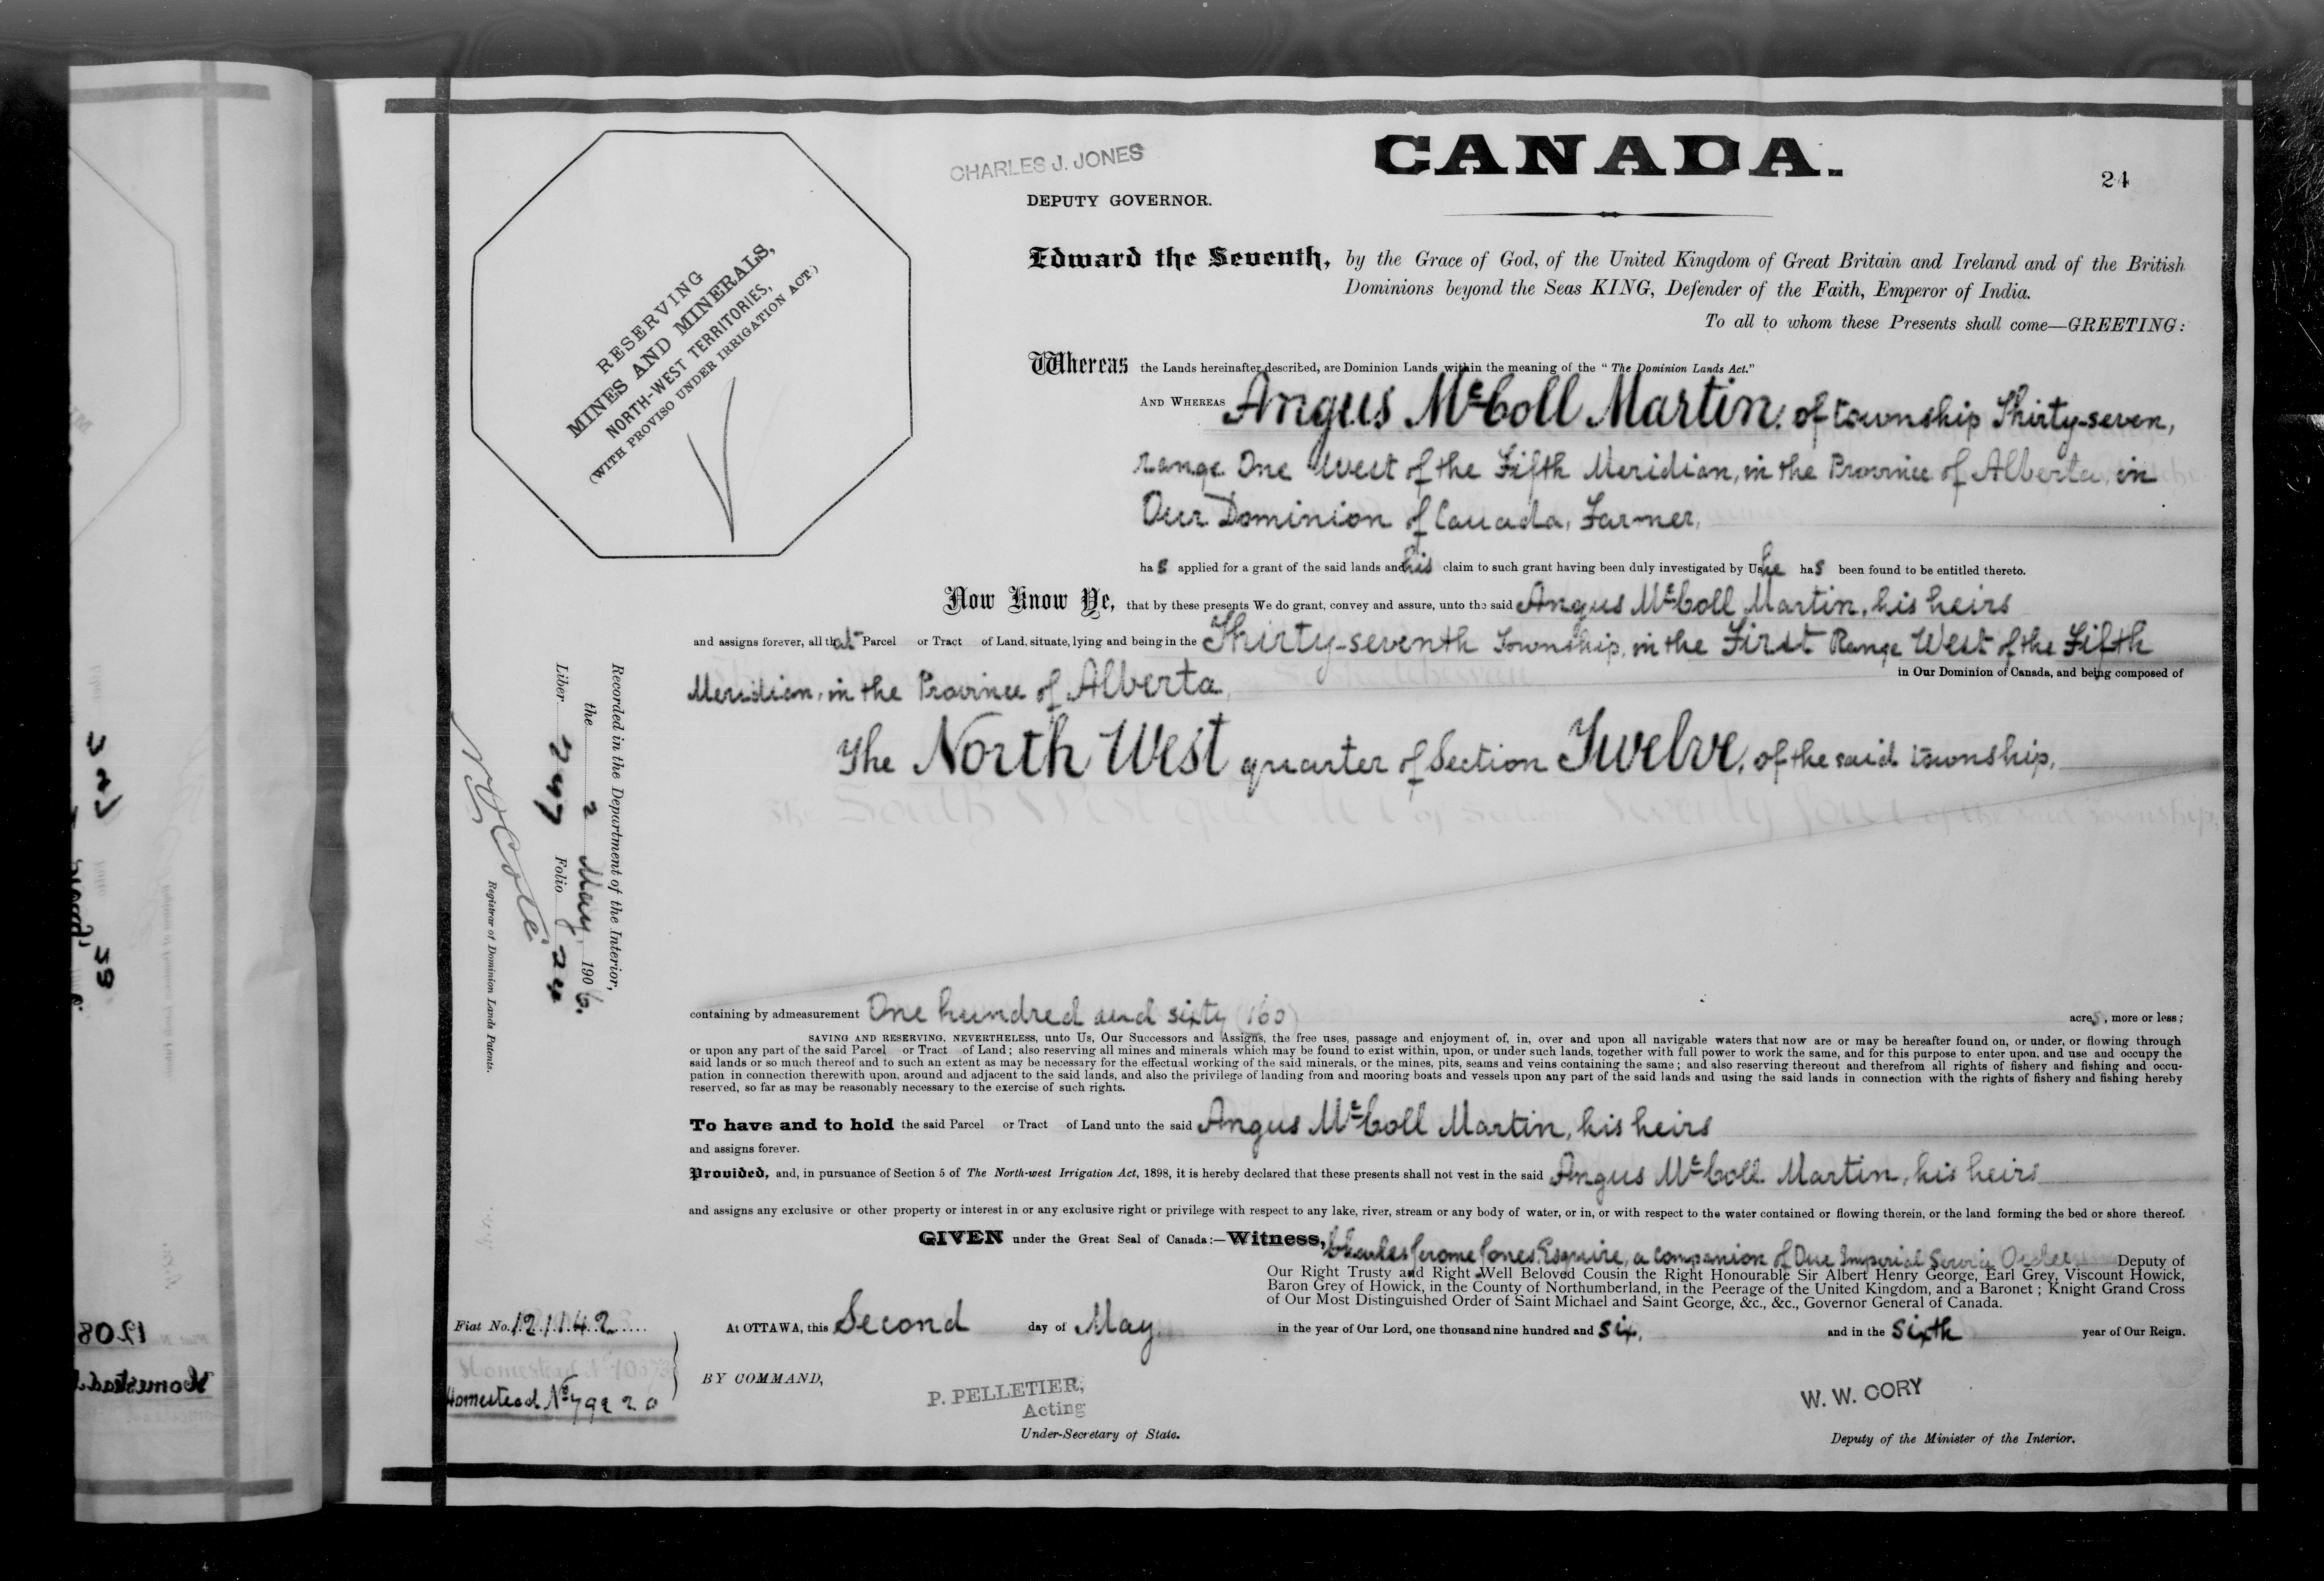 CHARLES J. JONES
DEPUTY GOVERNOR.
CANADA.
24
RESERVING
MINES AND MINERALS,
NORTH-WEST TERRITORIES,
(WITH PROVISO UNDER IRRIGATION ACT.)
Edward the Seventh, by the Grace of God, of the United Kingdom of Great Britain and Ireland and of the British
Dominions beyond the Seas KING, Defender of the Faith, Emperor of India.
To all to whom these Presents shall come—GREETING:
Whereas the Lands hereinafter described, are Dominion Lands within the meaning of the "The Dominion Lands Act."
AND WHEREAS Angus McColl Martin, of township Thirty-seven,
range One West of the Fifth Meridian, in the Province of Alberta, in
Our Dominion of Canada, Farmer,
has applied for a grant of the said lands and his claim to such grant having been duly investigated by Us he has been found to be entitled thereto.
Now Know Ye, that by these presents We do grant, convey and assure, unto the said Angus McColl Martin, his heirs
and assigns forever, all that Parcel or Tract of Land, situate, lying and being in the Thirty-seventh Township, in the First Range West of the Fifth
Meridian, in the Province of Alberta, in Our Dominion of Canada, and being composed of
The North West quarter of Section Twelve, of the said township,
The South West quarter of Section Twenty four of the said township,
Recorded in the Department of the Interior,
the 2 May, 1906.
Liber 247 Folio 24
Registrar of Dominion Lands Patents.
containing by admeasurement One hundred and sixty (160) acres, more or less;
SAVING AND RESERVING, NEVERTHELESS, unto Us, Our Successors and Assigns, the free uses, passage and enjoyment of, in, over and upon all navigable waters that now are or may be hereafter found on, or under, or flowing through
or upon any part of the said Parcel or Tract of Land; also reserving all mines and minerals which may be found to exist within, upon, or under such lands, together with full power to work the same, and for this purpose to enter upon, and use and occupy the
said lands or so much thereof and to such an extent as may be necessary for the effectual working of the said minerals, or the mines, pits, seams and veins containing the same; and also reserving thereout and therefrom all rights of fishery and fishing and occu-
pation in connection therewith upon, around and adjacent to the said lands, and also the privilege of landing from and mooring boats and vessels upon any part of the said lands and using the said lands in connection with the rights of fishery and fishing hereby
reserved, so far as may be reasonably necessary to the exercise of such rights.
To have and to hold the said Parcel or Tract of Land unto the said Angus McColl Martin, his heirs
and assigns forever.
Provided, and, in pursuance of Section 5 of The North-west Irrigation Act, 1898, it is hereby declared that these presents shall not vest in the said Angus McColl Martin, his heirs
and assigns any exclusive or other property or interest in or any exclusive right or privilege with respect to any lake, river, stream or any body of water, or in, or with respect to the water contained or flowing therein, or the land forming the bed or shore thereof.
GIVEN under the Great Seal of Canada:—Witness, Charles Jerome Jones, Esquire, a Companion of Our Imperial Service Order, Deputy of
Our Right Trusty and Right Well Beloved Cousin the Right Honourable Sir Albert Henry George, Earl Grey, Viscount Howick,
Baron Grey of Howick, in the County of Northumberland, in the Peerage of the United Kingdom, and a Baronet; Knight Grand Cross
of Our Most Distinguished Order of Saint Michael and Saint George, &c., &c., Governor General of Canada.
Fiat No. 121142
At OTTAWA, this Second day of May in the year of Our Lord, one thousand nine hundred and six, and in the Sixth year of Our Reign.
Homestead No 79920
BY COMMAND,
P. PELLETIER,
Acting
Under-Secretary of State.
W. W. CORY
Deputy of the Minister of the Interior.